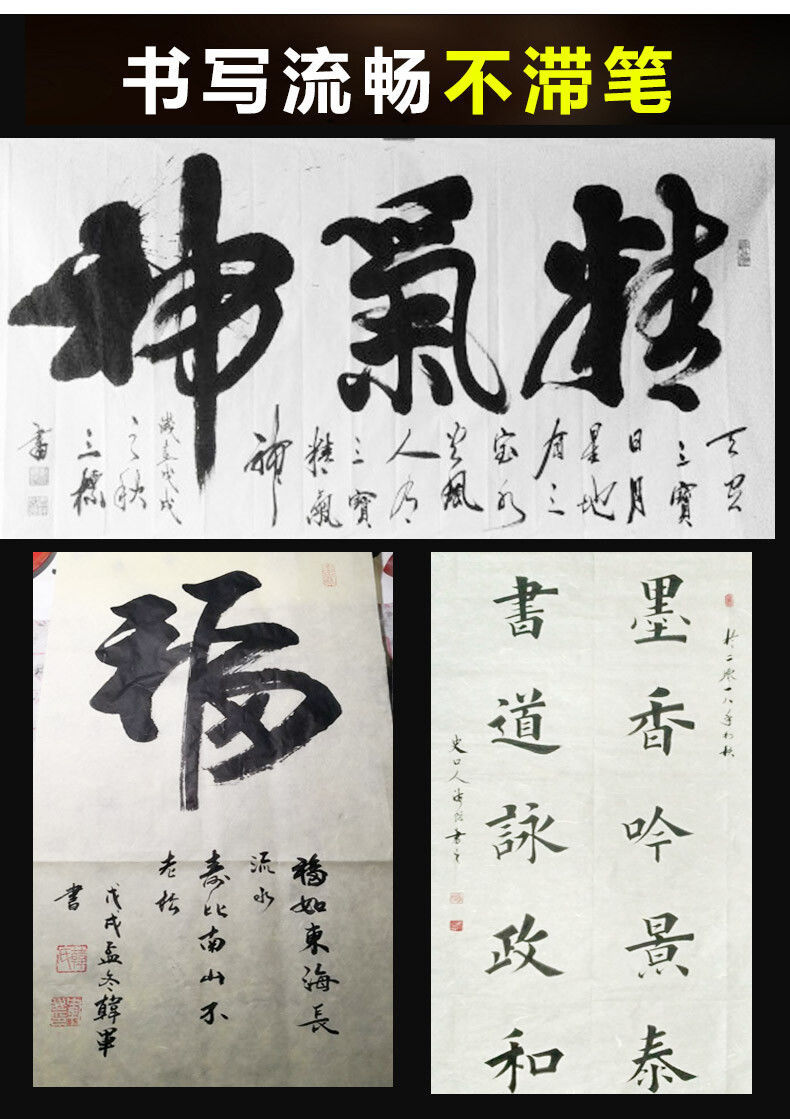 书写流畅不滞笔
精氣神
天有
三寶
日月
星地
有三
宝水
火風
人有
三寶
精氣
神
歲在戊戌
之秋
三標
書
福
福如東海長
流水
壽比南山不
老松
戊戌孟冬韓軍
書
於二零一八年初秋
墨香吟景泰
書道詠政和